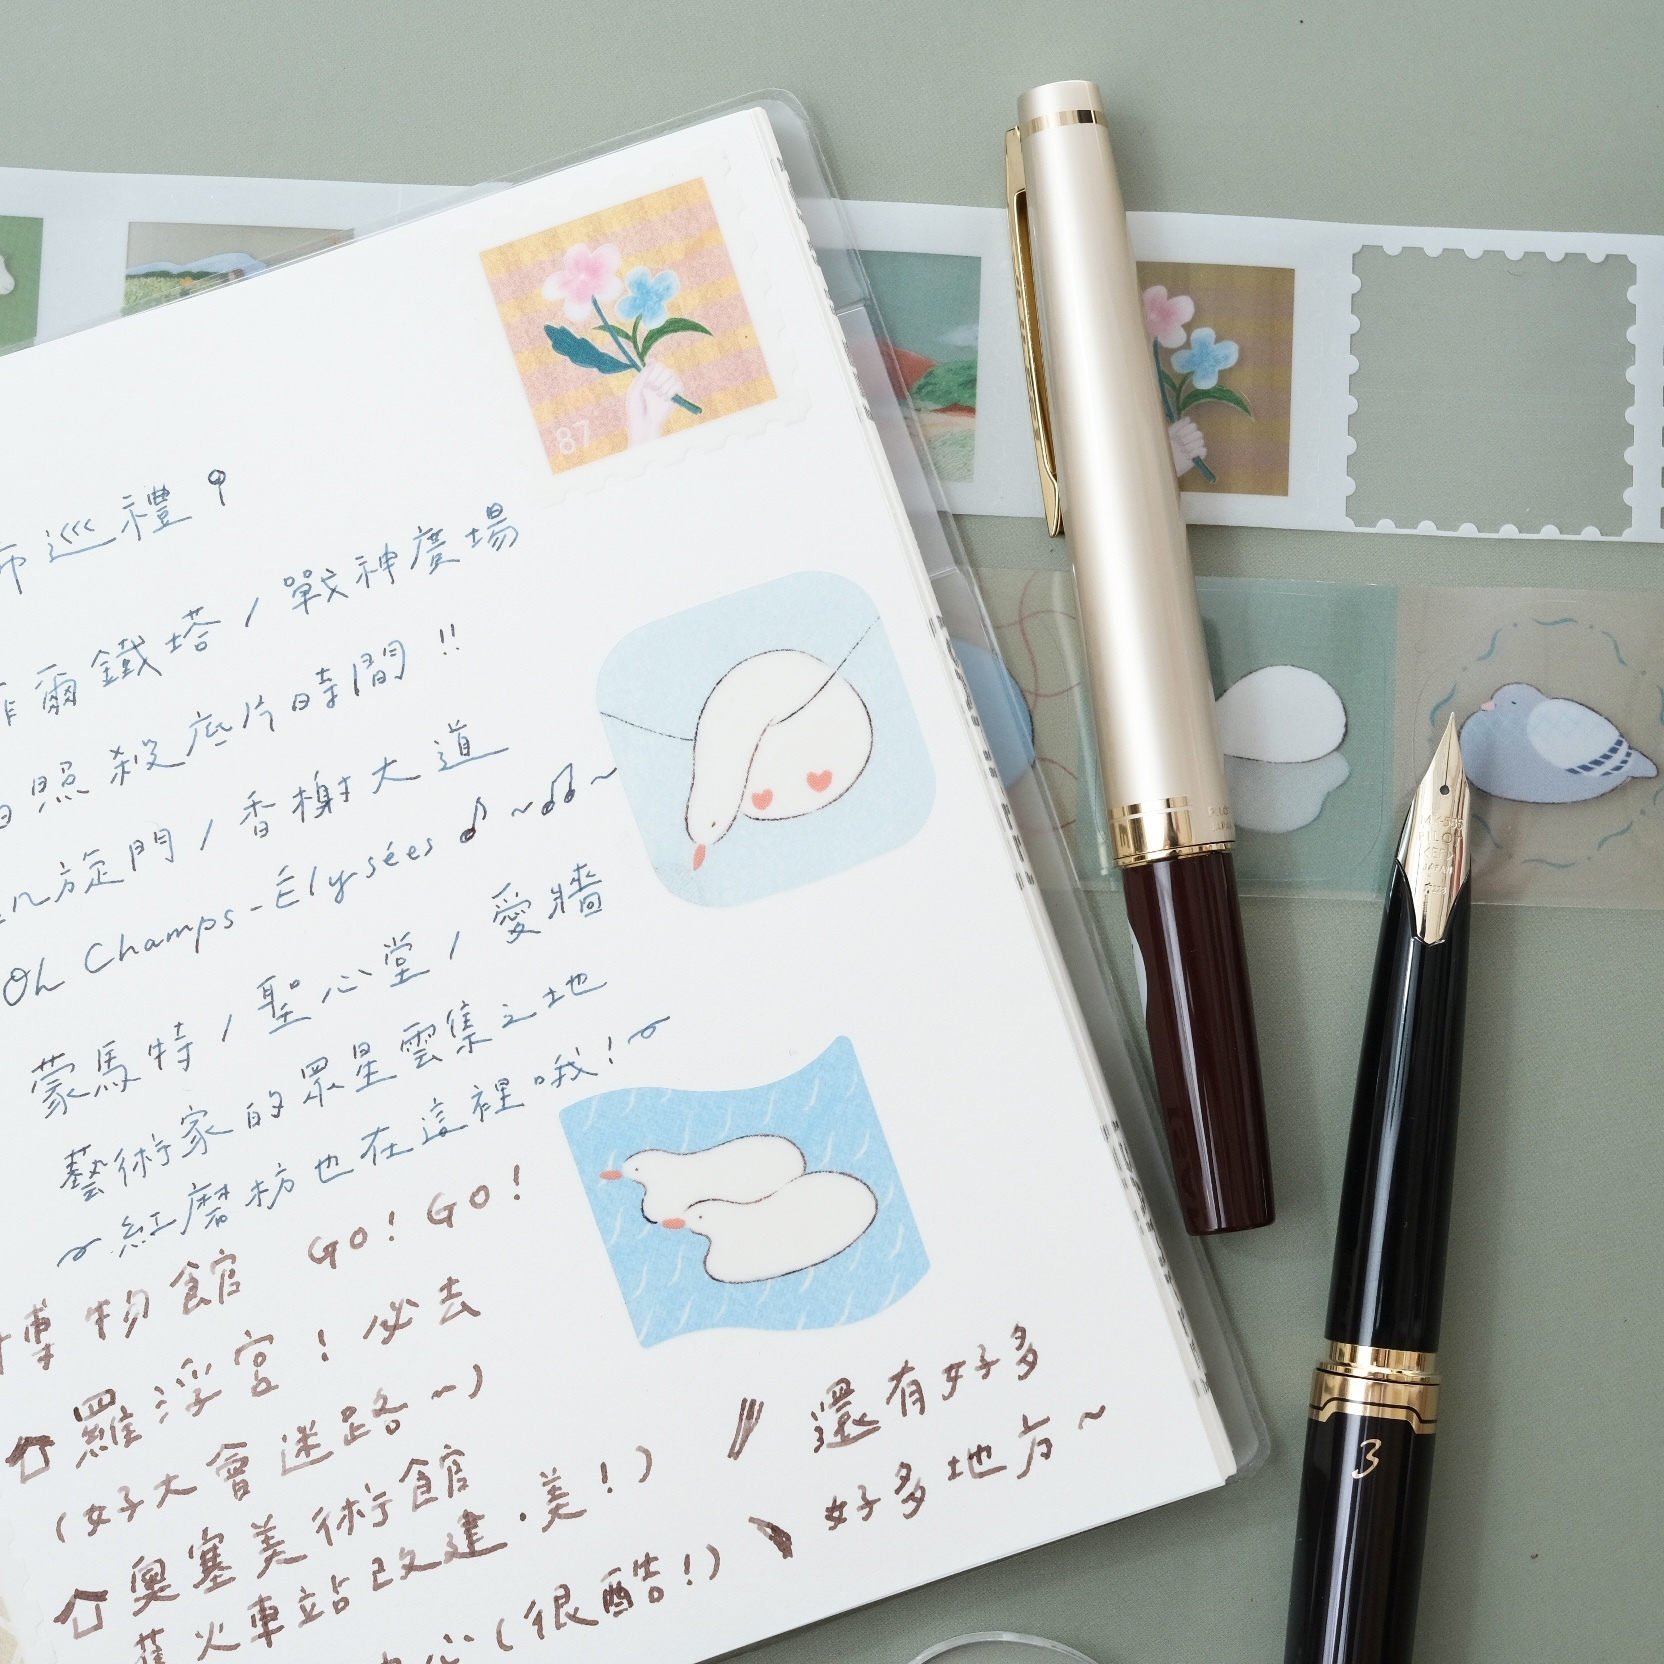 87
巡禮
爾鐵塔 / 戰神廣場
照殺底片時間!!
旋門 / 香榭大道
Oh Champs-Élysées ♪ ~♫~
蒙馬特 / 聖心堂 / 愛牆
藝術家的眾星雲集之地
~紅磨坊也在這裡哦!~
博物館 GO! GO!
羅浮宮! 必去
(好大會迷路~)
奧塞美術館
舊火車站改建·美!)
(很酷!)
還有好多
好多地方~
3